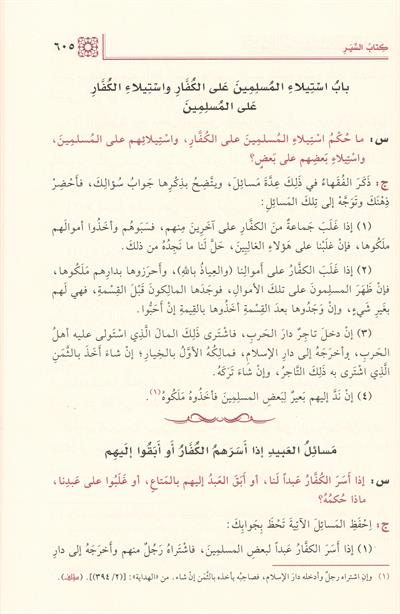 كِتابُ السِّيَرِ ٦٠٥
بابُ اسْتِيلاءِ المُسلِمِينَ عَلى الكُفَّارِ واسْتِيلاءِ الكُفَّارِ
عَلى المُسلِمِينَ
س: ما حُكْمُ اسْتِيلاءِ المُسلمِينَ عَلى الكُفَّارِ، واسْتِيلائِهم على المُسلمِينَ،
واسْتِيلاءِ بَعضِهم على بَعضٍ؟
ج: ذَكَرَ الفُقَهاءُ في ذَلِكَ عِدَّةَ مَسائلَ، ويتَّضِحُ بذِكرِها جَوابُ سُؤالِكَ، فأَحْضِرْ
ذِهْنَكَ وتَوَجَّهْ إلى تِلكَ المَسائلِ:
(١) إذا غَلَبَ جَماعةٌ منَ الكفَّارِ على آخَرِينَ مِنهم، فسَبَوهُم وأخَذُوا أموالَهم
ملَكُوها، فإنْ غَلَبْنا على هَؤلاءِ الغالِبينَ، حَلَّ لَنا ما نَجِدُهُ من ذلكَ.
(٢) إذا غَلَبَ الكفَّارُ على أموالِنا (والعِياذُ باللهِ)، وأحرَزوها بدارِهم مَلَكُوها،
فإنْ ظَهَرَ المسلمونَ على تلكَ الأموالِ، فوَجَدَها المالِكونَ قَبْلَ القِسْمةِ، فهي لَهم
بغَيرِ شَيءٍ، وإنْ وَجَدُوها بعدَ القِسمةِ أخَذُوها بالقِيمةِ إنْ أحَبُّوا.
(٣) إنْ دخلَ تاجِرٌ دارَ الحَربِ، فاشْتَرى ذَلِكَ المالَ الَّذِي اسْتَولى عليه أهلُ
الحَربِ، وأخرَجَهُ إلى دارِ الإسلامِ، فمالِكُهُ الأوَّلُ بالخِيارِ؛ إنْ شاءَ أخَذَ بالثَّمَنِ
الَّذِي اشْتَرى به ذَلكَ التَّاجرُ، وإنْ شاءَ تَرَكَهُ.
(٤) إنْ نَدَّ إليهم بَعيرٌ لِبَعضِ المسلمينَ فأخَذُوهُ مَلَكُوهُ(١).
مَسائلُ العَبيدِ إذا أَسَرَهمُ الكُفَّارُ أو أبَقُوا إلَيهِم
س: إذا أسَرَ الكُفَّارُ عَبداً لَنا، أو أبَقَ العَبدُ إليهم بالمَتاعِ، أو غَلَبُوا على عَبدِنا،
ماذا حُكمُهُ؟
ج: اِحْفَظِ المسائلَ الآتِيةَ تَحْظَ بِجَوابِكَ:
(١) إذا أسَرَ الكفَّارُ عَبداً لبعضِ المسلمينَ، فاشْتَراهُ رَجُلٌ منهم وأخرَجَهُ إلى دارِ
(١) وإن اشتراه رجلٌ وأدخله دارَ الإسلامِ، فصاحبُه يأخذه بالثَّمَنِ إنْ شاء. من «الهداية»: [(٢/ ٣٩٤)]. (مؤلف).